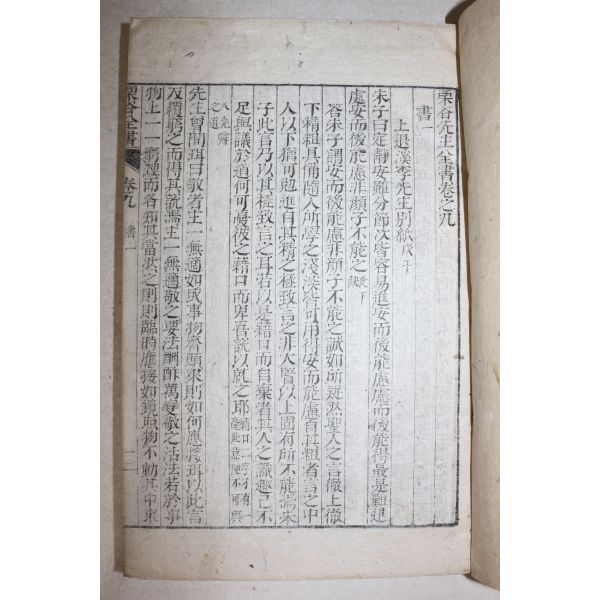 栗谷先生全書卷之九
書一
上退溪李先生別紙戊午
朱子曰定靜安雖分節次皆容易進安而後能慮慮而後能得最是難進
處安而後能慮非顔子不能之
答朱子謂安而後能慮非顔子不能之誠如所疑然聖人之言徹上徹
下精粗具備隨人所學之淺深皆可用得安而能慮自其粗者言之中
人以下猶可勉進自其精之極致言之非大賢以上固有所不能焉朱
子此言乃以其極致言之耳若以是藉口而自棄者其人之識趣已不
足與議於道何可憂彼之藉口而卑吾說以就之耶
入堯舜之道
先生曾聞珥曰敬者主一無適如或事物齊頭來則如何應接珥以此言
反覆窮之而得其說焉主一無適敬之要法酬酢萬變敬之活法若於事
物上一一窮理而各知其當然之則則臨時應接如鏡照物不動其中東
栗谷全書
卷九
書一